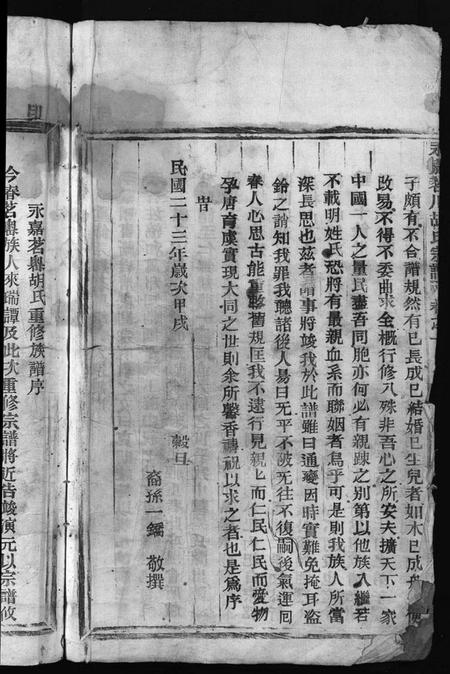 子頗有不合譜規然有已長成已結婚已生兒者如木已成舟
改易不得不委曲求全概行修入殊非吾心之所安夫擴天下一家
中國一人之量民盡吾同胞亦何必有親踈之別第以他族入繼若
不載明姓氏恐將有最親血系而聯姻者烏乎可是則我族人所當
深長思也茲者譜事將竣我於此譜雖曰通變因時實難免掩耳盜
鈴之誚知我罪我聽諸後人易曰无平不陂无往不復嗣後氣運囘
春人心思古能重整舊規匡我不逮行見親親而仁民仁民而愛物
孕唐育虞實現大同之世則余所馨香禱祝以求之者也是爲序
旹
民國二十三年歲次甲戌 穀旦
裔孫一鏞 敬撰
永嘉茗嶴胡氏重修族譜序
今春茗嶴族人來瑞譚及此次重修宗譜將近告竣演元以宗譜攸